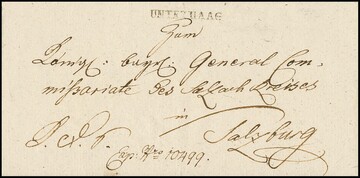 UNTERHAAG
Zum
Königl: bayr: General Com=
missariate des Salzach Kreises
in
Salzburg
Exp: Nro 10499.